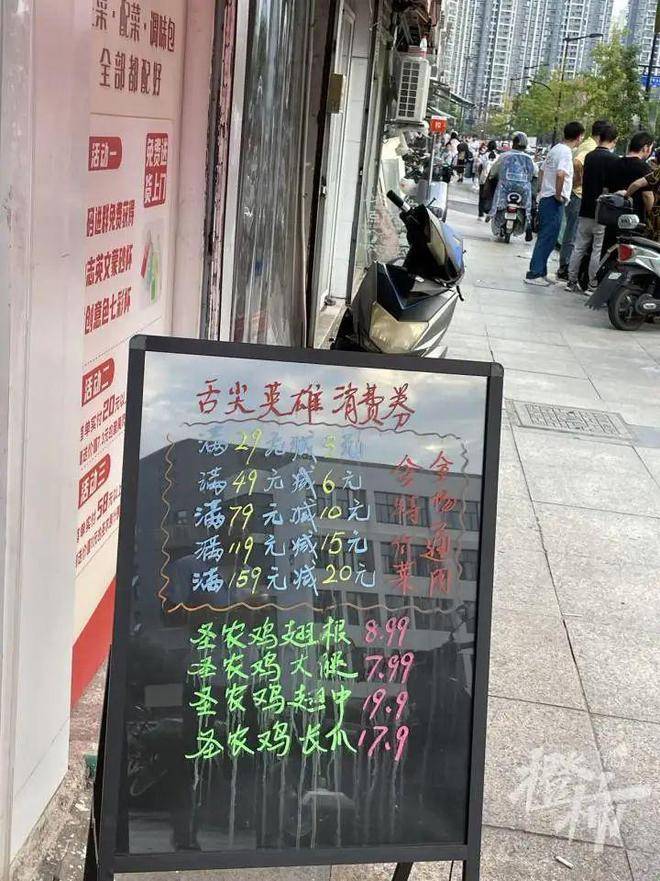 菜·配菜·调味包
全部都配好
活动一
免费送
货上门
码进群免费获得
创意色七彩杯
活动二
活动三
舌尖英雄消费券
满29元减3元
满49元减6元
满79元减10元
满119元减15元
满159元减20元
全场通用
含特价菜
圣农鸡翅根 8.99
圣农鸡大腿 7.99
圣农鸡翅中 19.9
圣农鸡长爪 17.9
橙柿